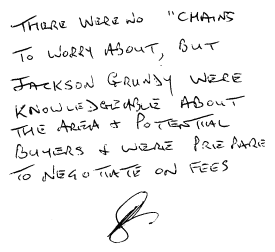 THERE WERE NO "CHAINS
TO WORRY ABOUT, BUT
JACKSON GRUNDY WERE
KNOWLEDGEABLE ABOUT
THE AREA & POTENTIAL
BUYERS & WERE PREPARE
TO NEGOTIATE ON FEES